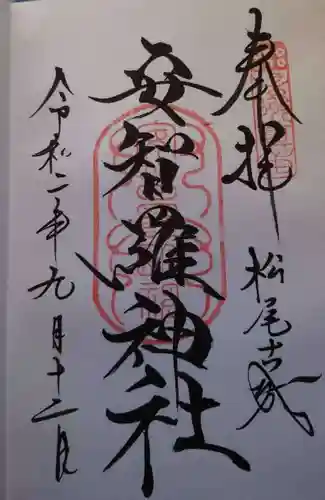 奉拝
松尾古城
安智羅神社
令和二年九月十二日